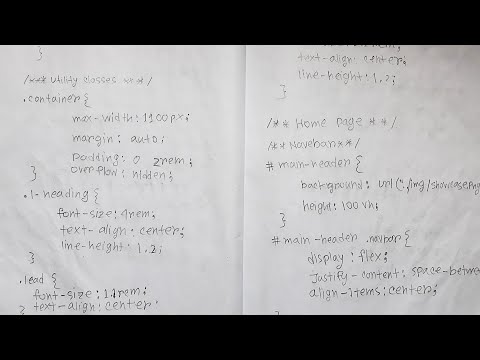 }
/*** Utility classes ***/
.container{
max-width:1100px;
margin: auto;
padding: 0 2rem;
overflow: hidden;
}
.l-heading{
font-size:4rem;
text-align:center;
line-height:1.2;
}
.lead {
font-size:1.1rem;
} text-align:center;
text-align: center;
line-height:1.2;
}
/** Home page **/
/** Navebar**/
# main-header{
background: url("./img/showcase.png
height:100vh;
}
# main-header .navbar{
display: flex;
justify-content: space-betwee
align-items:center;